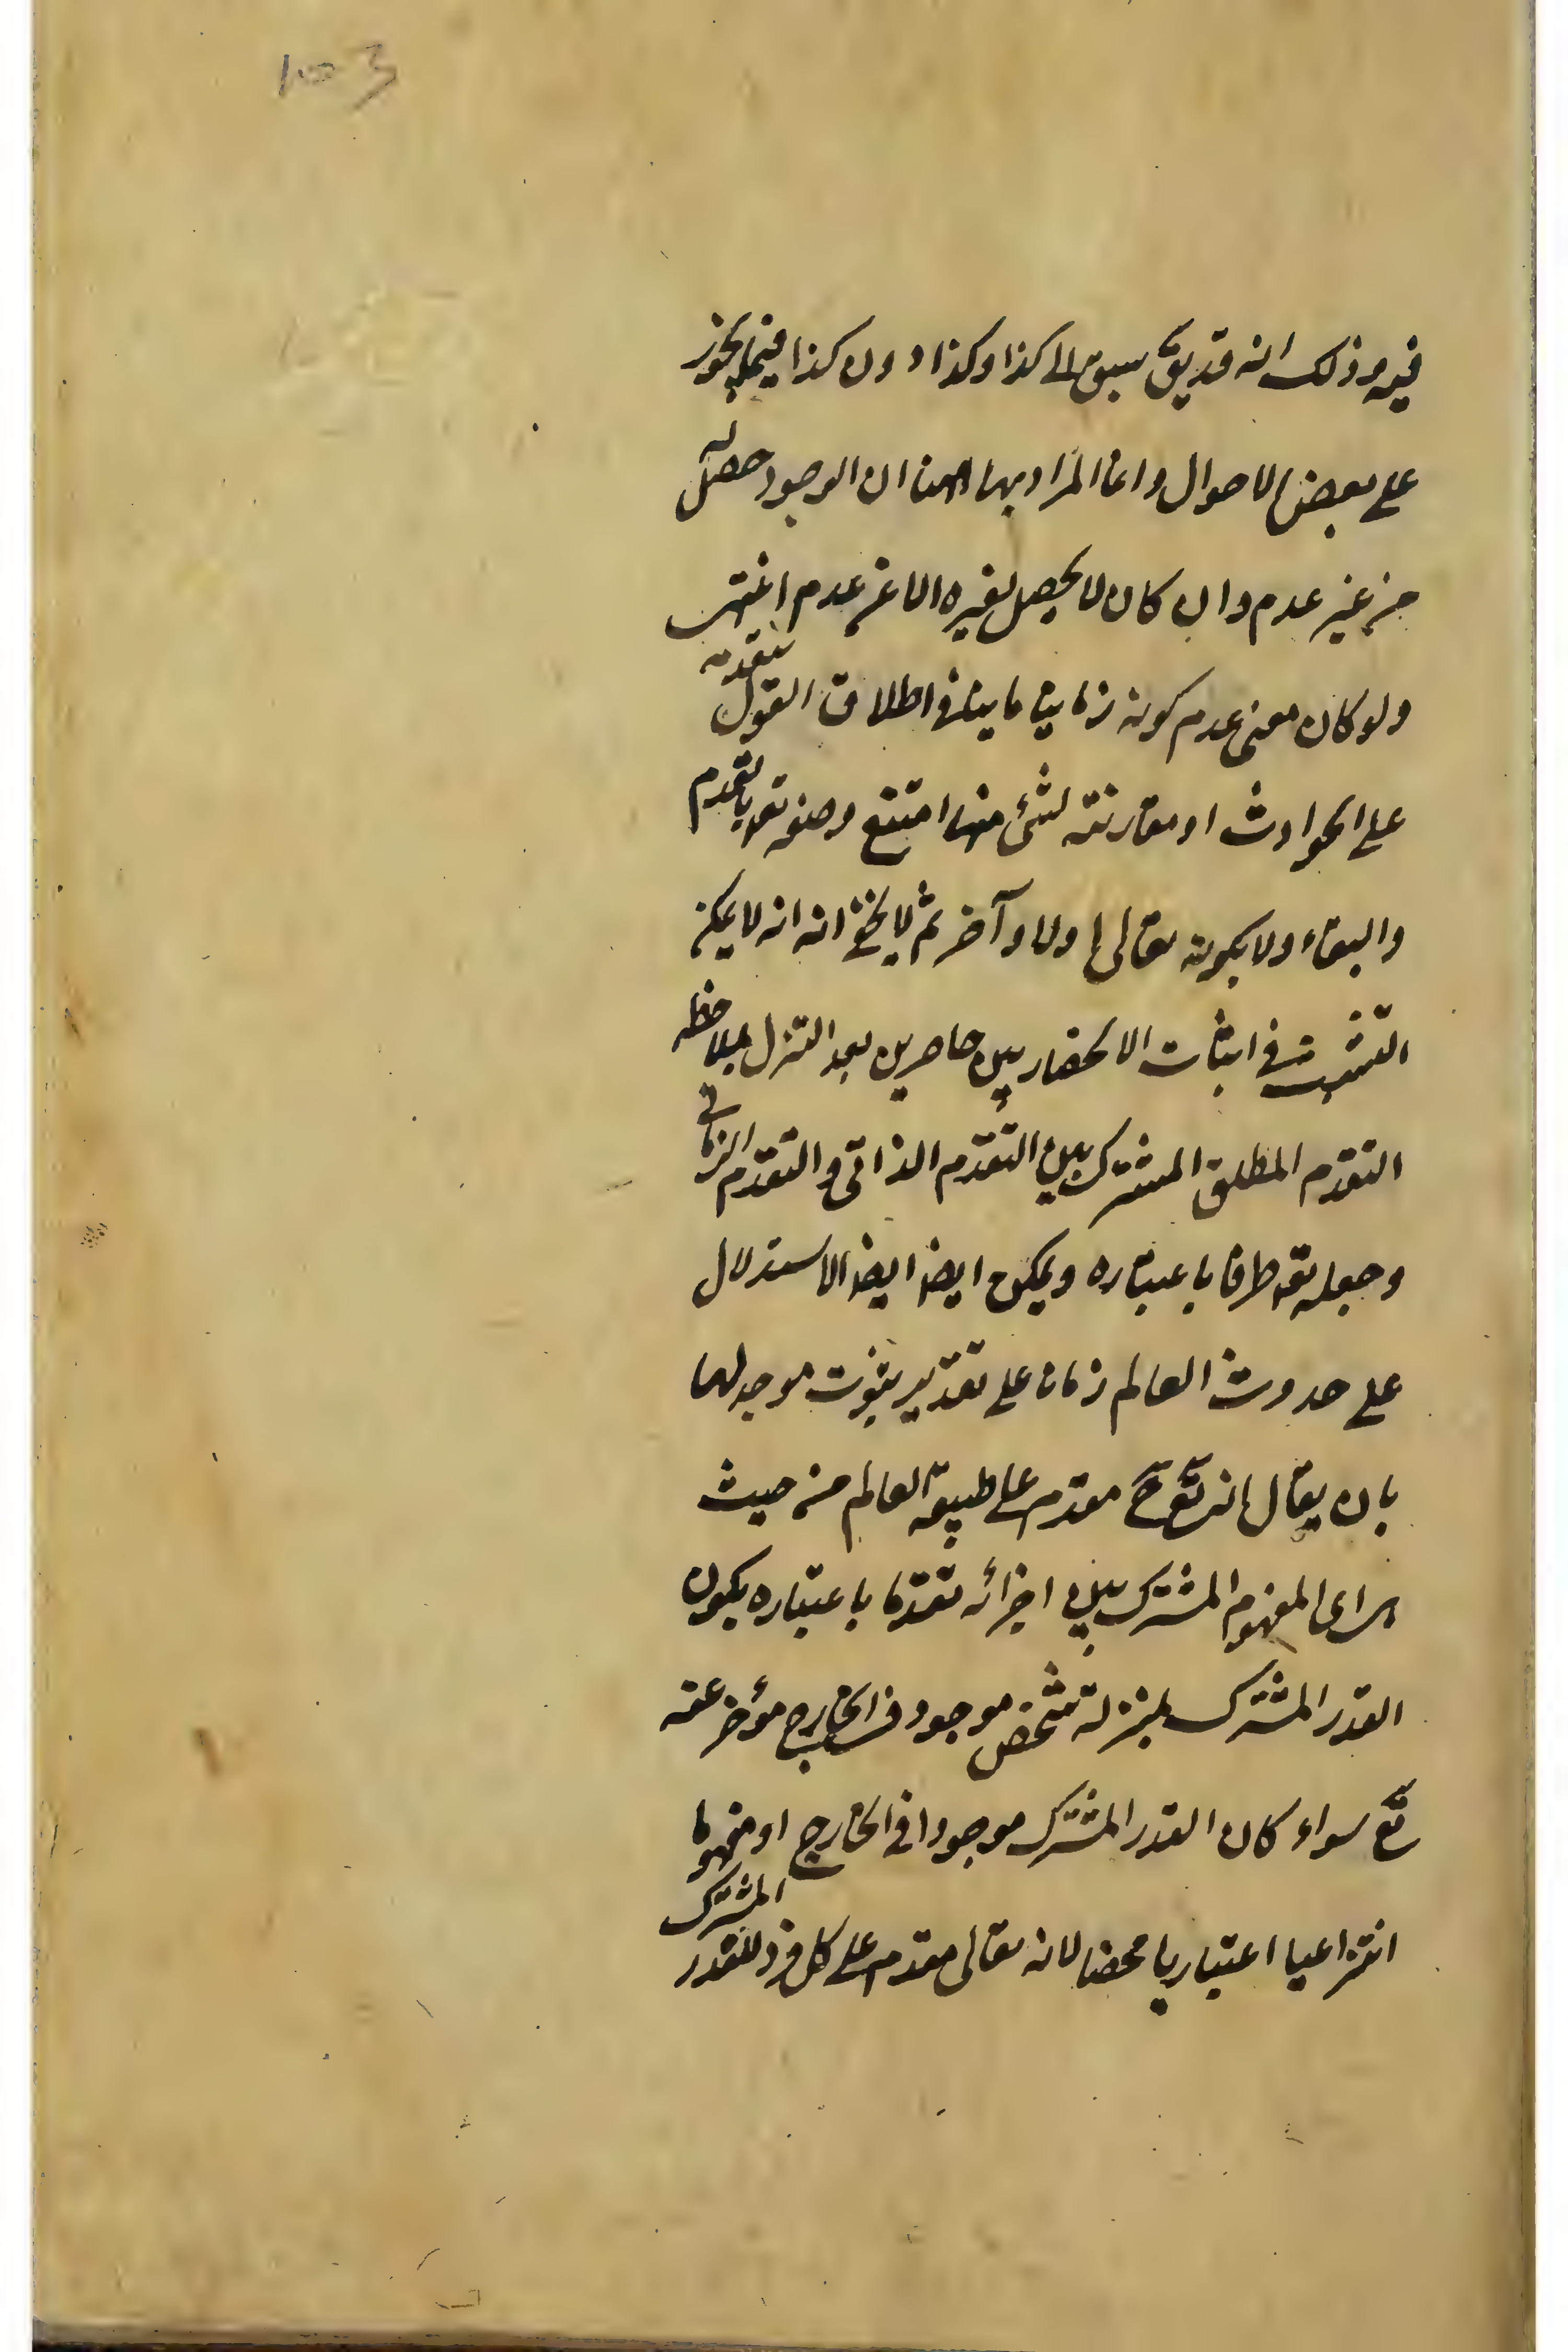 1003
فيه وذلك انه قد يقّ سبق الى كذا وكذا دون كذا فيما يجوز
على بعض الاحوال وانما المراد بها ههنا ان الوجود حصل له
من غير عدم وان كان لا يحصل لغيره الا عن عدم انتهى
ولو كان معنى عدم كونه زمانيا ما ينافى اطلاق القول بتقدمه
على الحوادث او مقارنته لشئ منها امتنع وصفه تعه بالتقدم
والبقاء ولا بكونه تعالى اولا وآخر ثم لا يخفى انه انه لا يمكن
التشبث فى اثبات الانحصار بين حاصرين بعد التنزل بملاحظه
التقدم المطلق المشترك بين التقدم الذاتى والتقدم الزمانى
وجعله تعه طرفا باعتباره ويمكن ايضا ايضا الاستدلال
على حدوث العالم زمانا على تقدير ثبوت موجد لهما
بان يقال انه تعّ حّ مقدم على طبيعة العالم من حيث
المفهوم المشترك بين اجزائه تقدما باعتباره يكون
القدر المشترك بمنزلة شخص موجود فى الخارج مؤخر عنه
تعّ سواء كان القدر المشترك موجودا فى الخارج او مفهوما
انتزاعيا اعتباريا محضا لانه تعالى مقدم على كل فرد للقدر المشترك